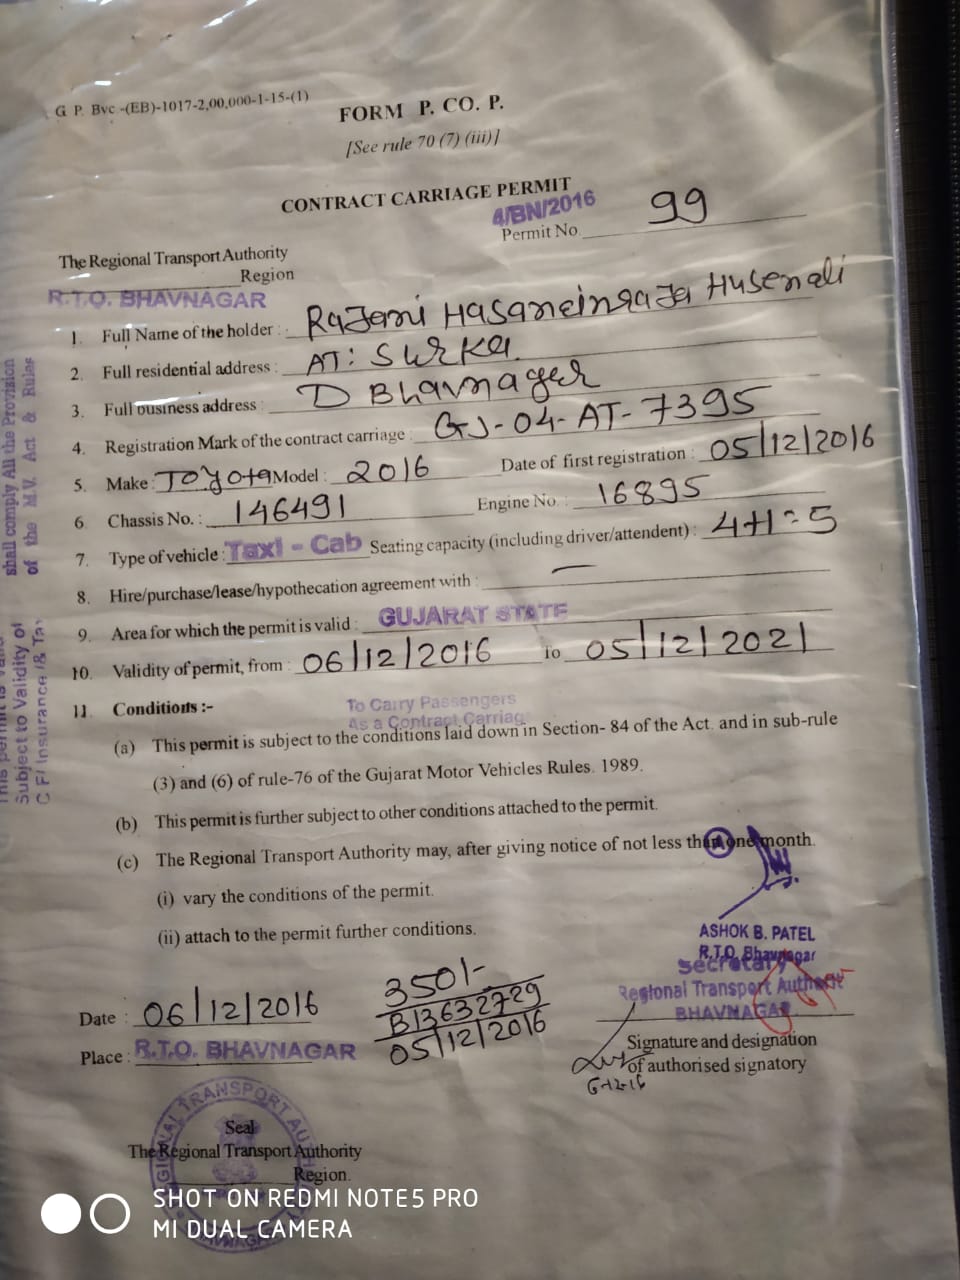 G. P. Bvc -(EB)-1017-2,00,000-1-15-(1)
FORM P. CO. P.
[See rule 70 (7) (iii)]
CONTRACT CARRIAGE PERMIT
4/BN/2016
Permit No 99
The Regional Transport Authority
Region
R.T.O. BHAVNAGAR
1. Full Name of the holder : Rajani Hasaneinraja Husenali
2. Full residential address : AT: Surka
3. Full business address : D Bhavnager
4. Registration Mark of the contract carriage : GJ-04-AT-7395
5. Make : Toyota Model : 2016 Date of first registration : 05/12/2016
6. Chassis No. : 146491 Engine No. : 16895
7. Type of vehicle : Taxi - Cab Seating capacity (including driver/attendent) : 4+1=5
8. Hire/purchase/lease/hypothecation agreement with : —
9. Area for which the permit is valid : GUJARAT STATE
10. Validity of permit, from : 06/12/2016 To 05/12/2021
11. Conditions :-
To Carry Passengers
As a Contract Carriag
(a) This permit is subject to the conditions laid down in Section- 84 of the Act. and in sub-rule
(3) and (6) of rule-76 of the Gujarat Motor Vehicles Rules. 1989.
(b) This permit is further subject to other conditions attached to the permit.
(c) The Regional Transport Authority may, after giving notice of not less than one month.
(i) vary the conditions of the permit.
(ii) attach to the permit further conditions.
shall comply All the Provision
of the M.V. Act & Rules
Subject to Validity of
ASHOK B. PATEL
R.T.O. Bhavnagar
Secretary
Regional Transport
BHAVNAGAR
350/-
B13632729
05/12/2016
Date : 06/12/2016
Place : R.T.O. BHAVNAGAR
Signature and designation
of authorised signatory
6-12-16
Seal
The Regional Transport Authority
Region.
SHOT ON REDMI NOTE 5 PRO
MI DUAL CAMERA